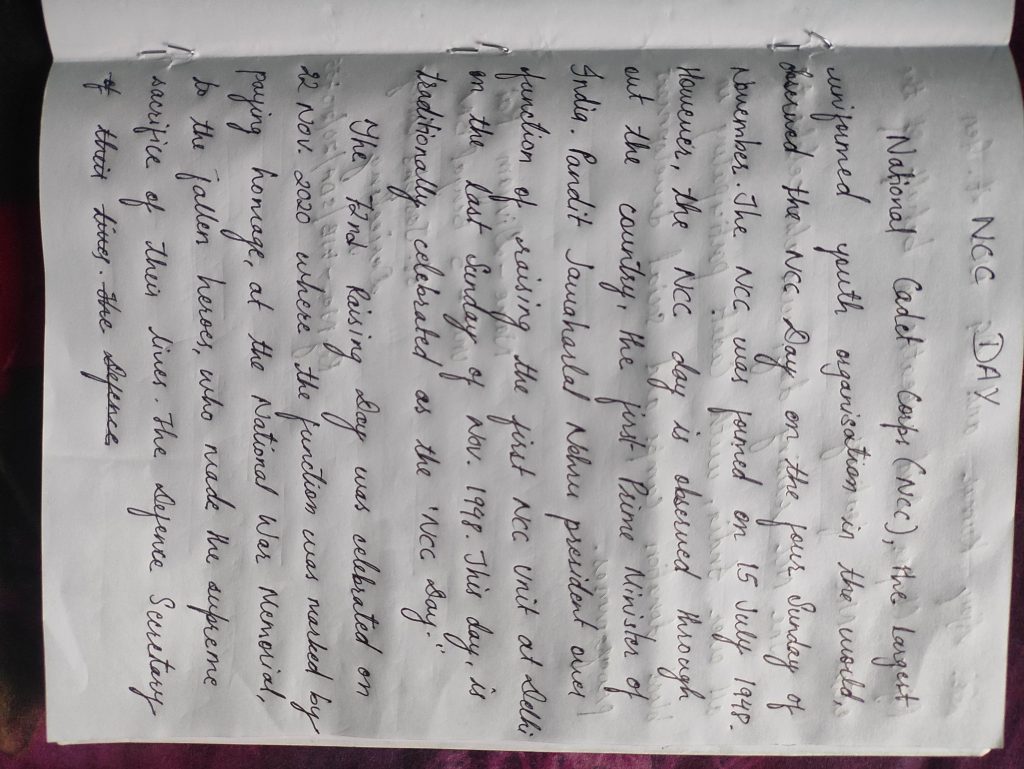 NCC DAY
National Cadet Corps (NCC), the largest
uniformed youth organisation in the world,
observed the NCC Day on the four Sunday of
November. The NCC was formed on 15 July 1948.
However, the NCC day is observed through
out the county, the first Prime Minister of
India. Pandit Jawaharlal Nehru president over
function of raising the first NCC unit at Delhi
on the last Sunday of Nov. 1948. This day, is
traditionally celebrated, as the 'NCC Day'.
The 72nd Raising Day was celebrated on
22 Nov. 2020 where the function was marked by
paying homage, at the National War Memorial,
to the fallen heroes, who made the supreme
sacrifice of their lives. The Defence Secretary
of their lives. the Defence